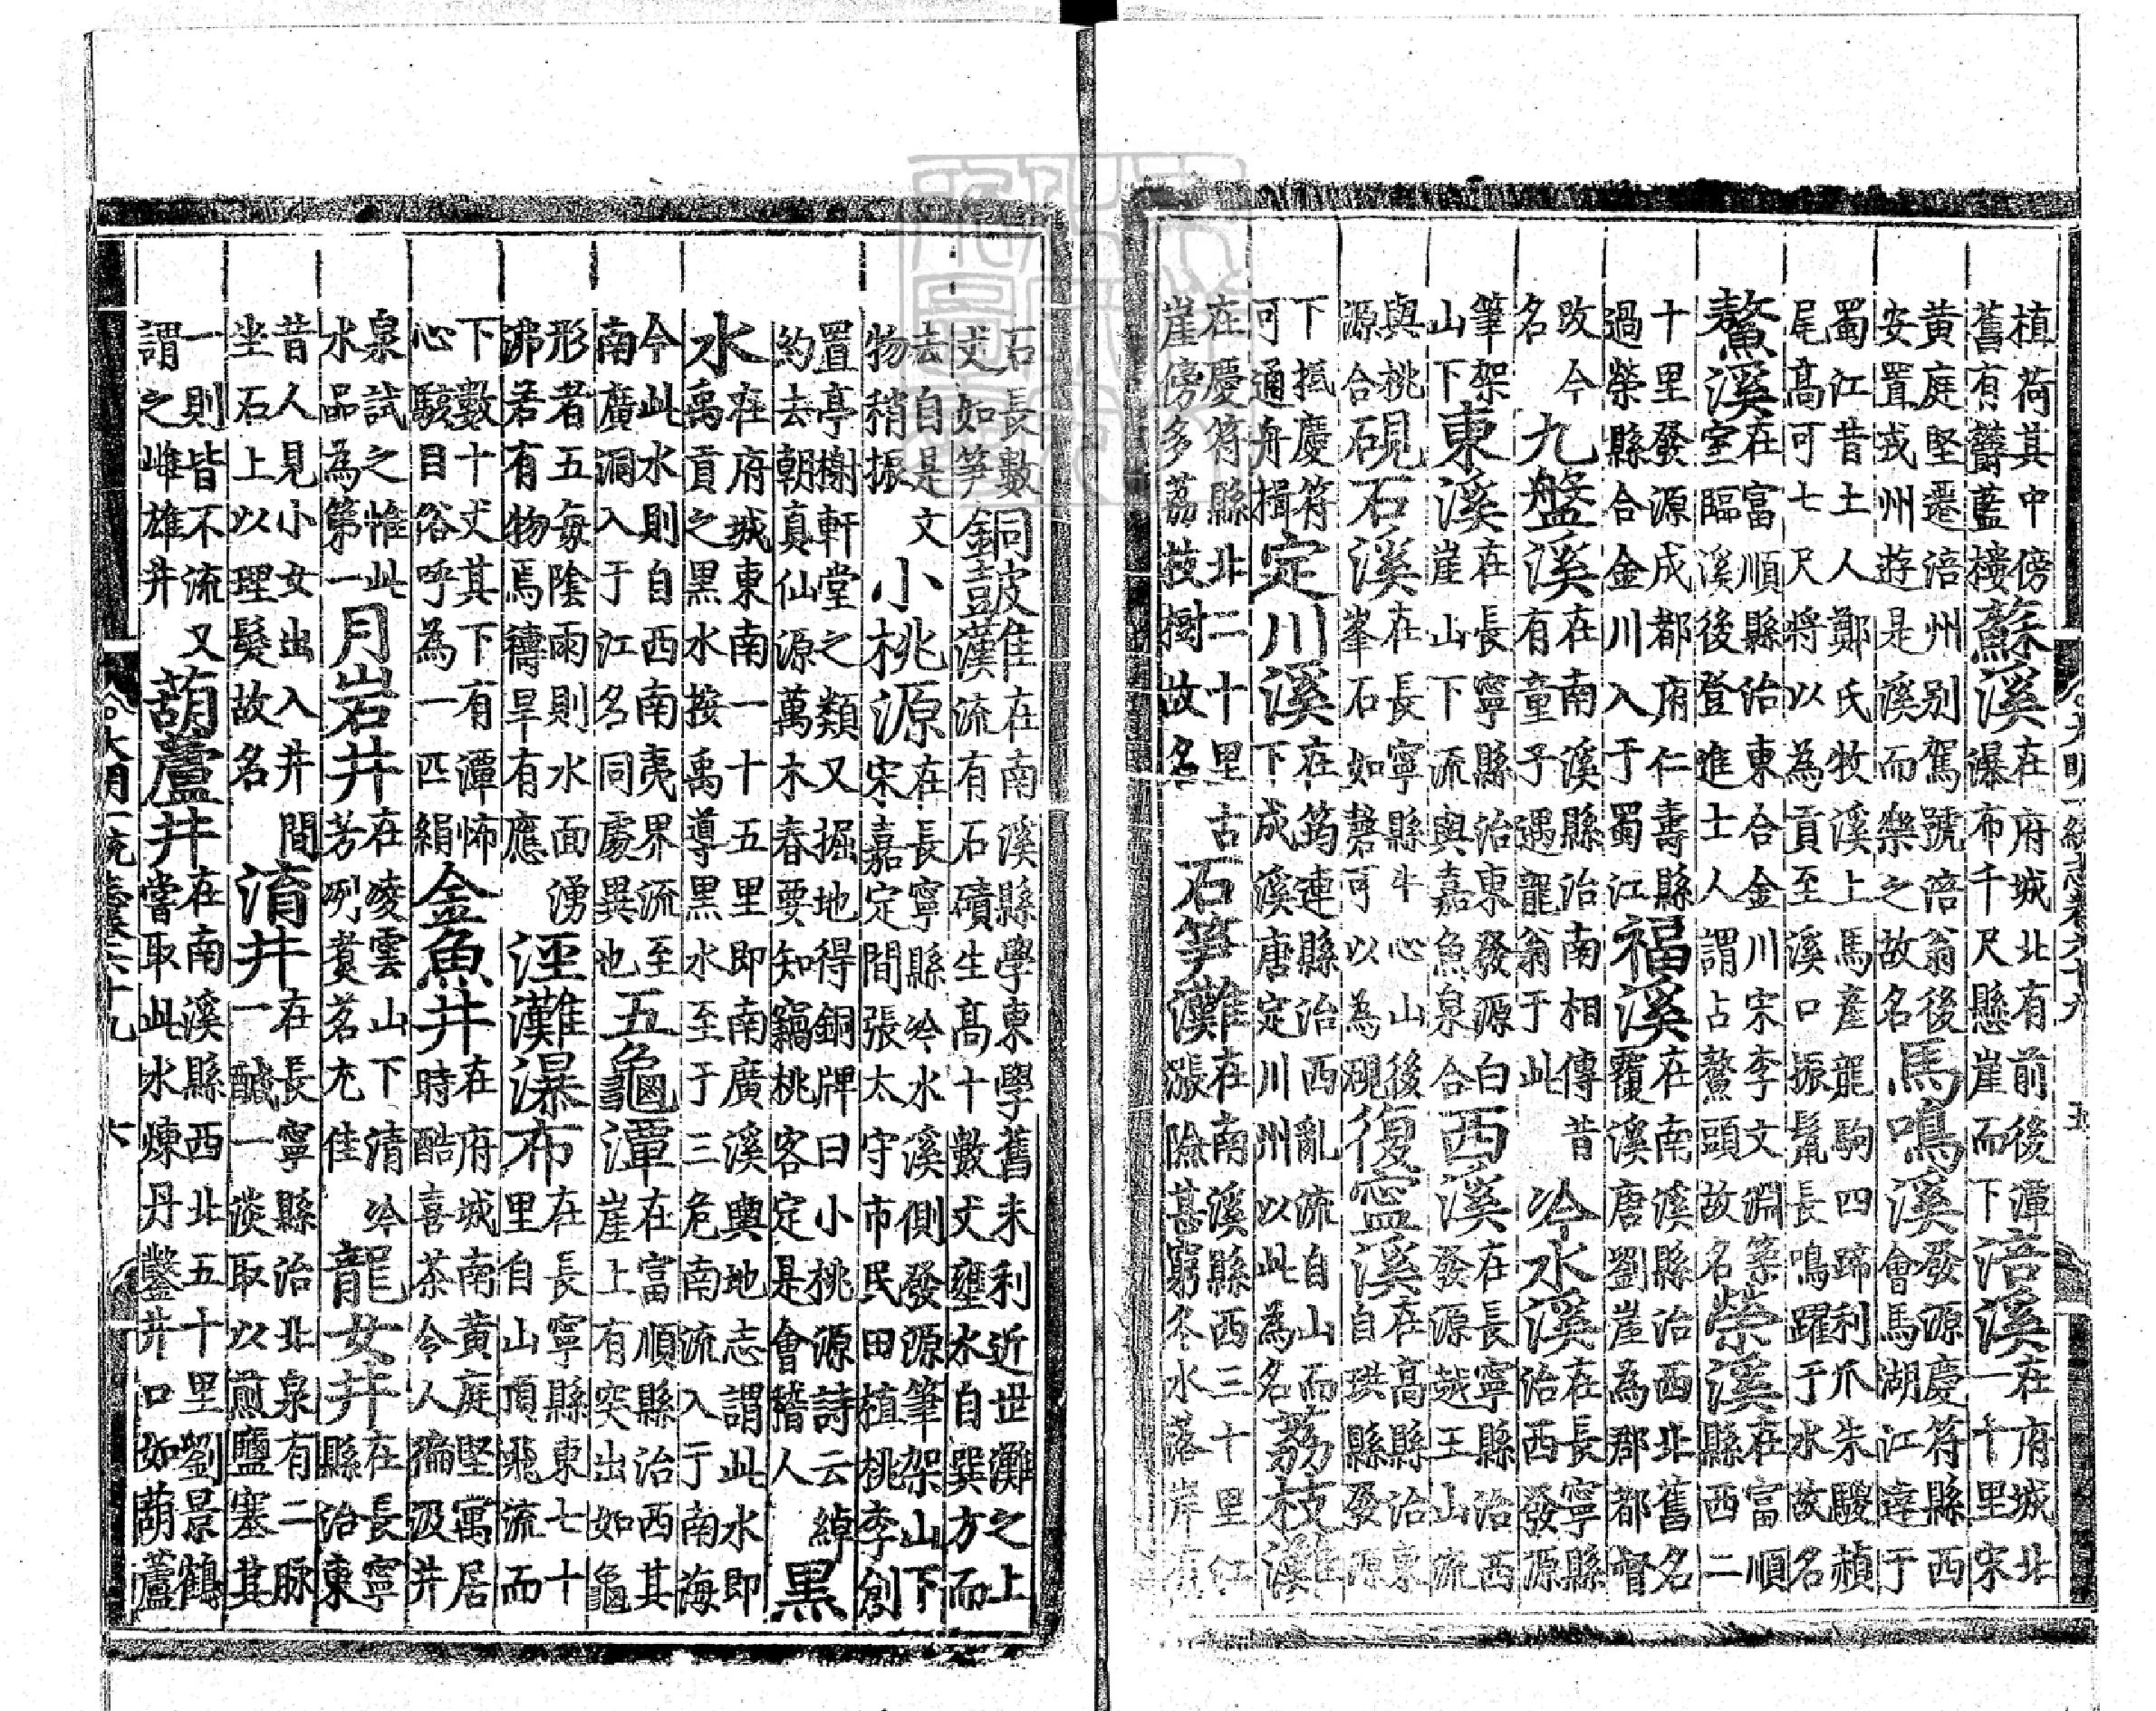 大明一統志卷六十九 五
植荷其中傍舊有欝藍樓蘇溪在府城北有前後潭瀑布千尺懸崖而下涪溪在府城北一十里宋
黄庭堅遷涪州别駕號涪翁後安置戎州遊是溪而樂之故名馬鳴溪發源慶符縣西會馬湖江達于
蜀江昔土人鄭氏牧溪上馬產龍駒四蹄利爪朱騣赬尾高可七尺將以為貢至溪口振鬣長鳴躍于水故名
鰲溪在富順縣治東合金川宋李文淵築室臨溪後登進士人謂占鰲頭故名榮溪在富順縣西二
十里發源成都府仁壽縣過榮縣合金川入于蜀江福溪在南溪縣治西北舊名覆溪唐劉崖為郡都督
改今名九盤溪在南溪縣治南相傳昔有童子遇龍翁于此冷水溪在長寧縣治西發源
筆架山下東溪在長寧縣治東發源白崖山下流與嘉魚泉合西溪在長寧縣治西發源越王山流
與桃源合硯石溪在長寧縣牛心山後峯石如磬可以為硯復寧溪在高縣治東自珙縣發源
下抵慶符可通舟揖定川溪在筠連縣治西亂流自山而下成溪唐定川州以此為名荔枝灘
在慶符縣北二十里古崖傍多荔枝樹故名石笋灘在南溪縣西三十里江漲險甚窮冬水落岸有
石長數丈如笋銅鼓灘在南溪縣學東學舊未利近世灘之上流有石磧生高十數丈壅水自巽方而
去自是文物稍振小桃源在長寧縣冷水溪側發源筆架山下宋嘉定間張太守市民田植桃李創
置亭榭軒堂之類又掘地得銅牌曰小桃源詩云綽約去朝真仙源萬木春要知竊桃客定是會稽人黑
水在府城東南一十五里即南廣溪輿地志謂此水即禹貢之黑水按禹導黑水至于三危南流入于南海
今此水則自西南夷界流至南廣洞入于江名同處異也五龜潭在富順縣治西其崖上有突出如龜
形者五每陰雨則水面湧沸若有物焉禱旱有應涇灘瀑布在長寧縣東七十里自山頂飛流而
下數十丈其下有潭怖心駭目俗呼為一匹絹金魚井在府城南黄庭堅寓居時酷喜茶令人徧汲井
泉試之惟此水品為第一月岩井在凌雲山下清冷芳冽煑茗尤佳龍女井在長寧縣治東
昔人見小女出入井間坐石上以理髮故名淯井在長寧縣治北泉有二脉一醎一淡取以煎鹽塞其
一則皆不流又謂之雌雄井葫蘆井在南溪縣西北五十里劉景鶴嘗取此水煉丹鑿井口如葫蘆
大明一統志卷六十九 六